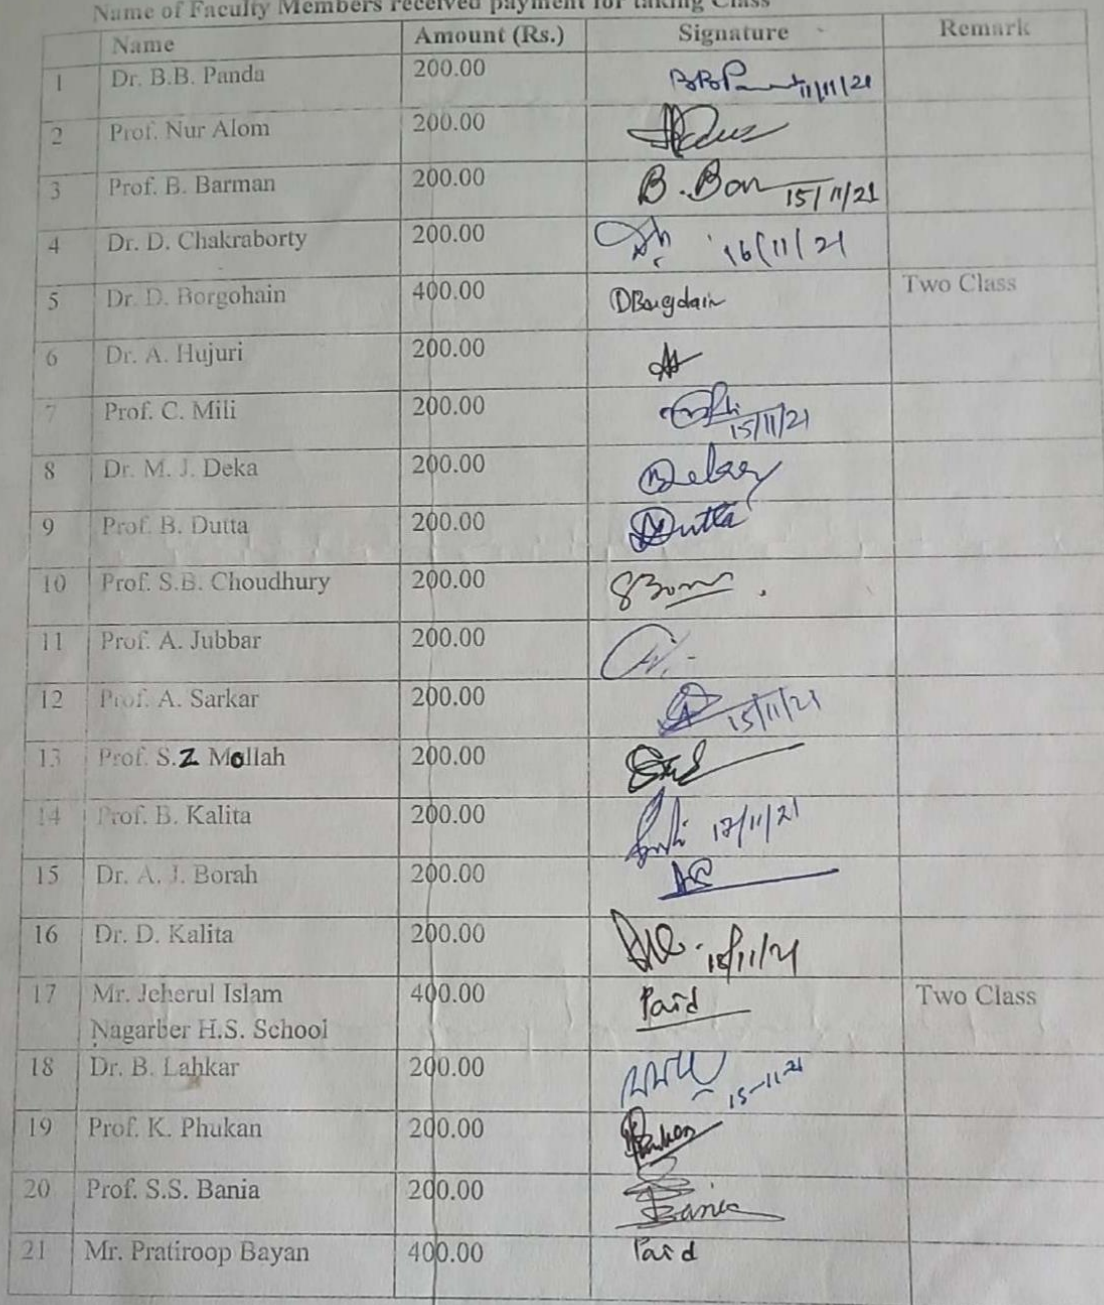 Name of Faculty Members received payment for taking Class
Name Amount (Rs.) Signature Remark
1 Dr. B.B. Panda 200.00 11/11/21
2 Prof. Nur Alom 200.00
3 Prof. B. Barman 200.00 15/11/21
4 Dr. D. Chakraborty 200.00 16/11/21
5 Dr. D. Borgohain 400.00 Two Class
6 Dr. A. Hujuri 200.00
7 Prof. C. Mili 200.00 15/11/21
8 Dr. M. J. Deka 200.00
9 Prof. B. Dutta 200.00 Dutta
10 Prof. S.B. Choudhury 200.00
11 Prof. A. Jubbar 200.00
12 Prof. A. Sarkar 200.00 15/11/21
13 Prof. S.Z Mollah 200.00
14 Prof. B. Kalita 200.00 /11/21
15 Dr. A. J. Borah 200.00
16 Dr. D. Kalita 200.00 /11/21
17 Mr. Jeherul Islam 400.00 Paid Two Class
Nagarber H.S. School
18 Dr. B. Lahkar 200.00 15-11-21
19 Prof. K. Phukan 200.00
20 Prof. S.S. Bania 200.00 Bania
21 Mr. Pratiroop Bayan 400.00 Paid